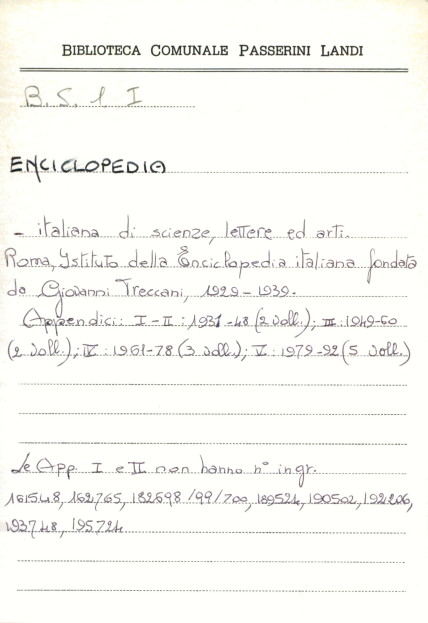 BIBLIOTECA COMUNALE PASSERINI LANDI
B. S. 1 I
ENCICLOPEDIA
- italiana di scienze, lettere ed arti.
Roma, Istituto della Enciclopedia italiana fondata
da Giovanni Treccani, 1929-1939.
Appendici: I-II: 1931-48 (2 voll.); III: 1949-60
(2 voll.); IV: 1961-78 (3 voll.); V: 1979-92 (5 voll.)
Le App. I e II non hanno n° ingr.
161548, 162765, 182698/99/700, 189524, 190502, 192206,
193748, 195724